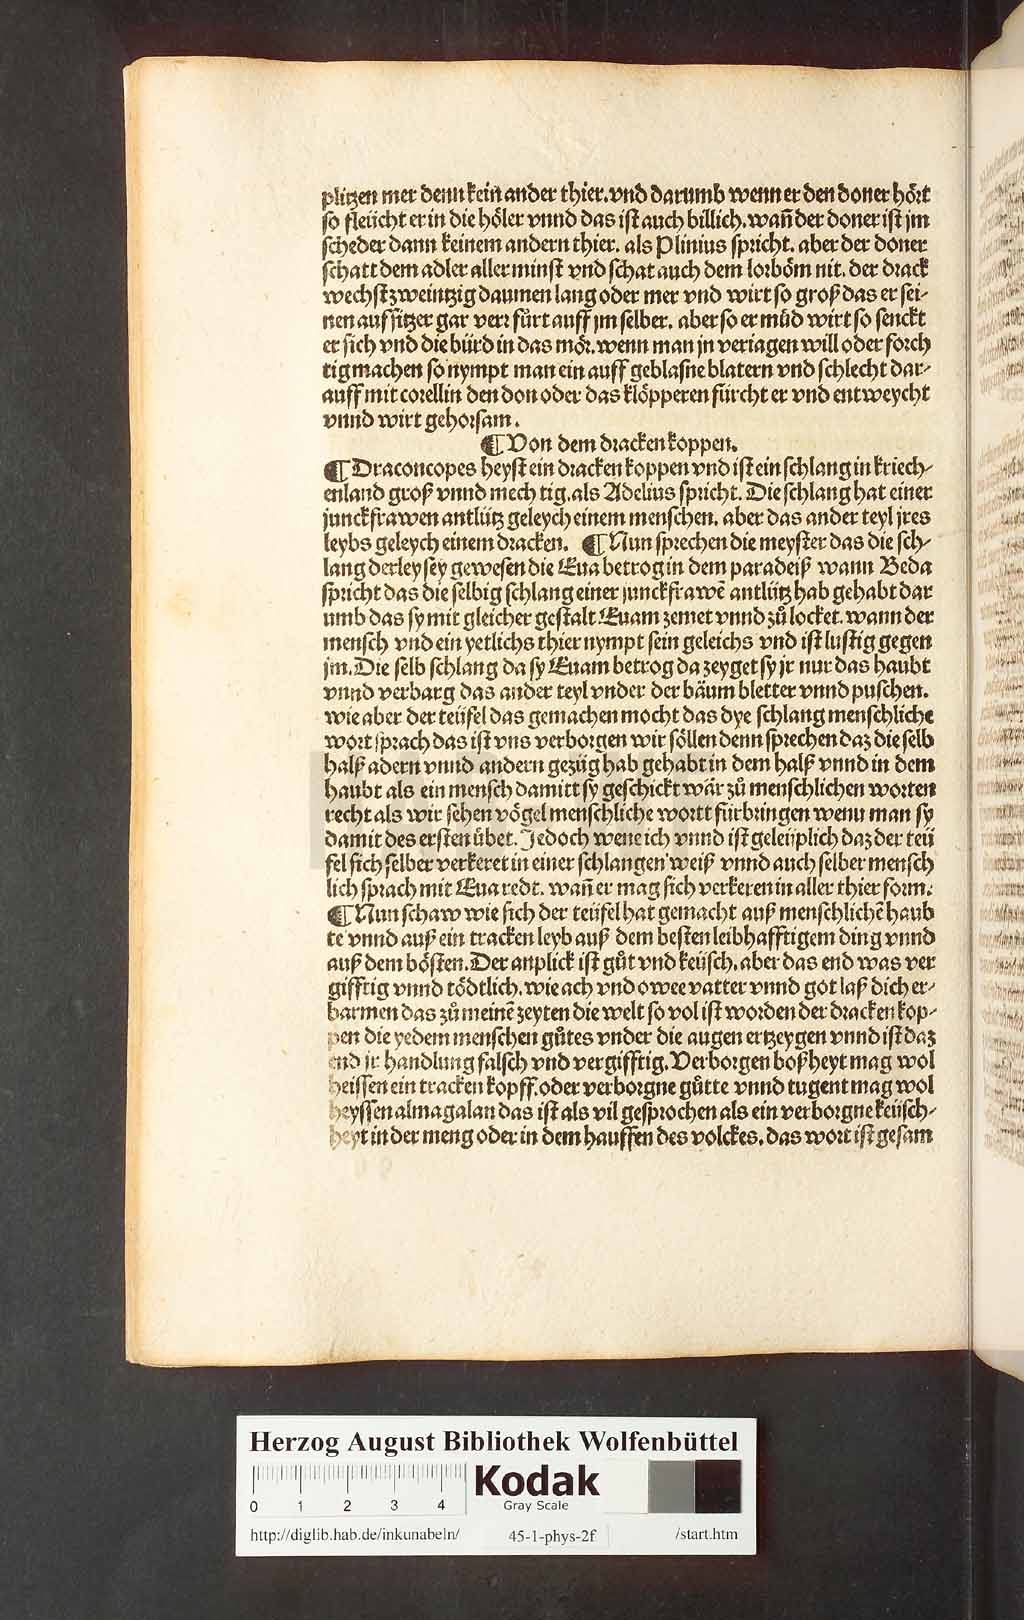 plitzen mer denn kein ander thier. vnd darumb wenn er den doner hört
so fleücht er in die höler vnnd das ist auch billich. wañ der doner ist jm
scheder dann keinem andern thier. als Plinius spricht. aber der doner
schatt dem adler aller minst vnd schat auch dem lorböm nit. der drack
wechst zweintzig daumen lang oder mer vnd wirt so groß das er sei-
nen auffsitzer gar verr fürt auff jm selber. aber so er müd wirt so senckt
er sich vnd die bürd in das mör. wenn man jn veriagen will oder forch
tig machen so nympt man ein auff geblasne blatern vnd schlecht dar-
auff mit corellin den don oder das klöpperen fürcht er vnd entweycht
vnnd wirt gehorsam.
¶ Von dem dracken koppen.
¶ Draconcopes heyst ein dracken koppen vnd ist ein schlang in kriech-
enland groß vnnd mech tig. als Adelius spricht. Die schlang hat einer
junckfrawen antlütz geleych einem menschen. aber das ander teyl jres
leybs geleych einem dracken. ¶ Nun sprechen die meyster das die sch-
lang derley sey gewesen die Eua betrog in dem paradeiß wann Beda
spricht das die selbig schlang einer junckfrawē antlütz hab gehabt dar
umb das sy mit gleicher gestalt. Euam zemet vnnd zů locket. wann der
mensch vnd ein yetlichs thier nympt sein geleichs vnd ist lustig gegen
jm. Die selb schlang da sy Euam betrog da zeyget sy jr nur das haubt
vnnd verbarg das ander teyl vnder der bäum bletter vnnd puschen.
wie aber der teüfel das gemachen mocht das dye schlang menschliche
wort sprach das ist vns verborgen wir söllen denn sprechen daz die selb
halß adern vnnd andern gezüg hab gehabt in dem halß vnnd in dem
haubt als ein mensch damitt sy geschickt wär zů menschlichen worten
recht als wir sehen vögel menschliche wortt fürbringen wenn man sy
damit des ersten übet. Jedoch wene ich vnnd ist geleüplich daz der teü
fel sich selber verkeret in einer schlangen weiß vnnd auch selber mensch
lich sprach mit Eua redt. wañ er mag sich verkeren in aller thier form.
¶ Nun schaw wie sich der teüfel hat gemacht auß menschlichē haub
te vnnd auß ein tracken leyb auß dem besten leibhafftigem ding vnnd
auß dem bösten. Der anplick ist gůt vnd keüsch. aber das end was ver
gifftig vnnd tödtlich. wie ach vnd owee vatter vnnd got laß dich er-
barmen das zů meinē zeyten die welt so vol ist worden der dracken kop-
pen die yedem menschen gůtes vnder die augen ertzeygen vnnd ist daz
end jr handlung falsch vnd vergifftig. Verborgen boßheyt mag wol
heissen ein tracken kopff. oder verborgne gůtte vnnd tugent mag wol
heyssen almagalan das ist als vil gesprochen als ein verborgne keüsch-
heyt in der meng oder in dem hauffen des volckes. das wort ist gesam
Herzog August Bibliothek Wolfenbüttel
0 1 2 3 4
Kodak
Gray Scale
http://diglib.hab.de/inkunabeln/ 45-1-phys-2f /start.htm